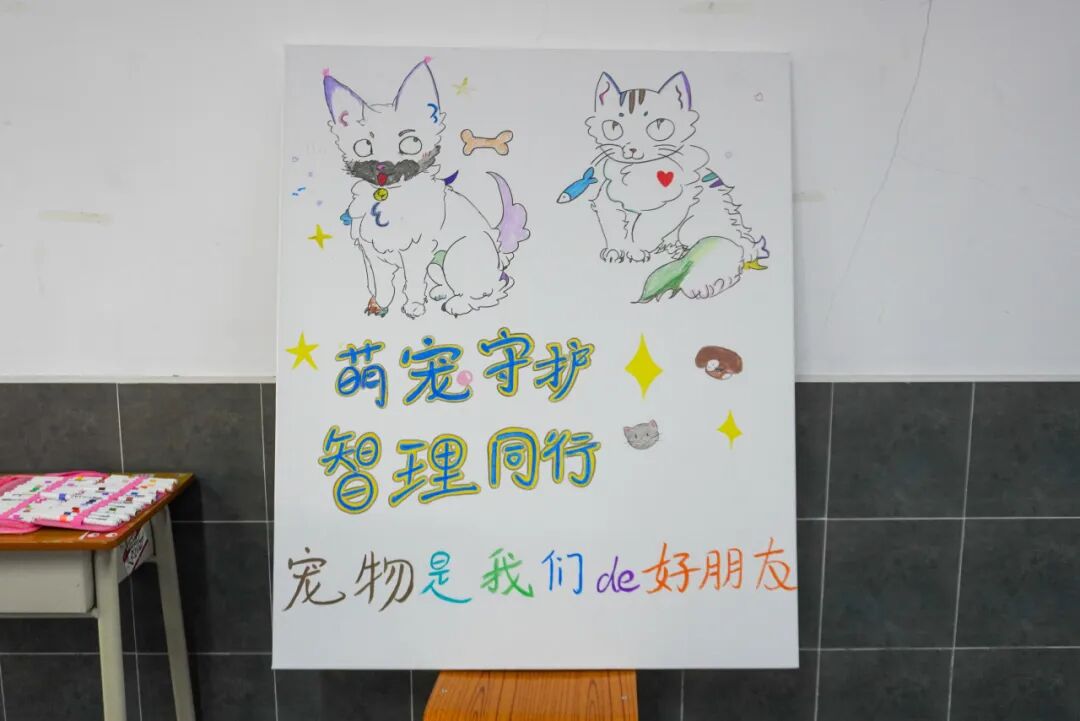 萌宠守护
智理同行
宠物是我们de好朋友